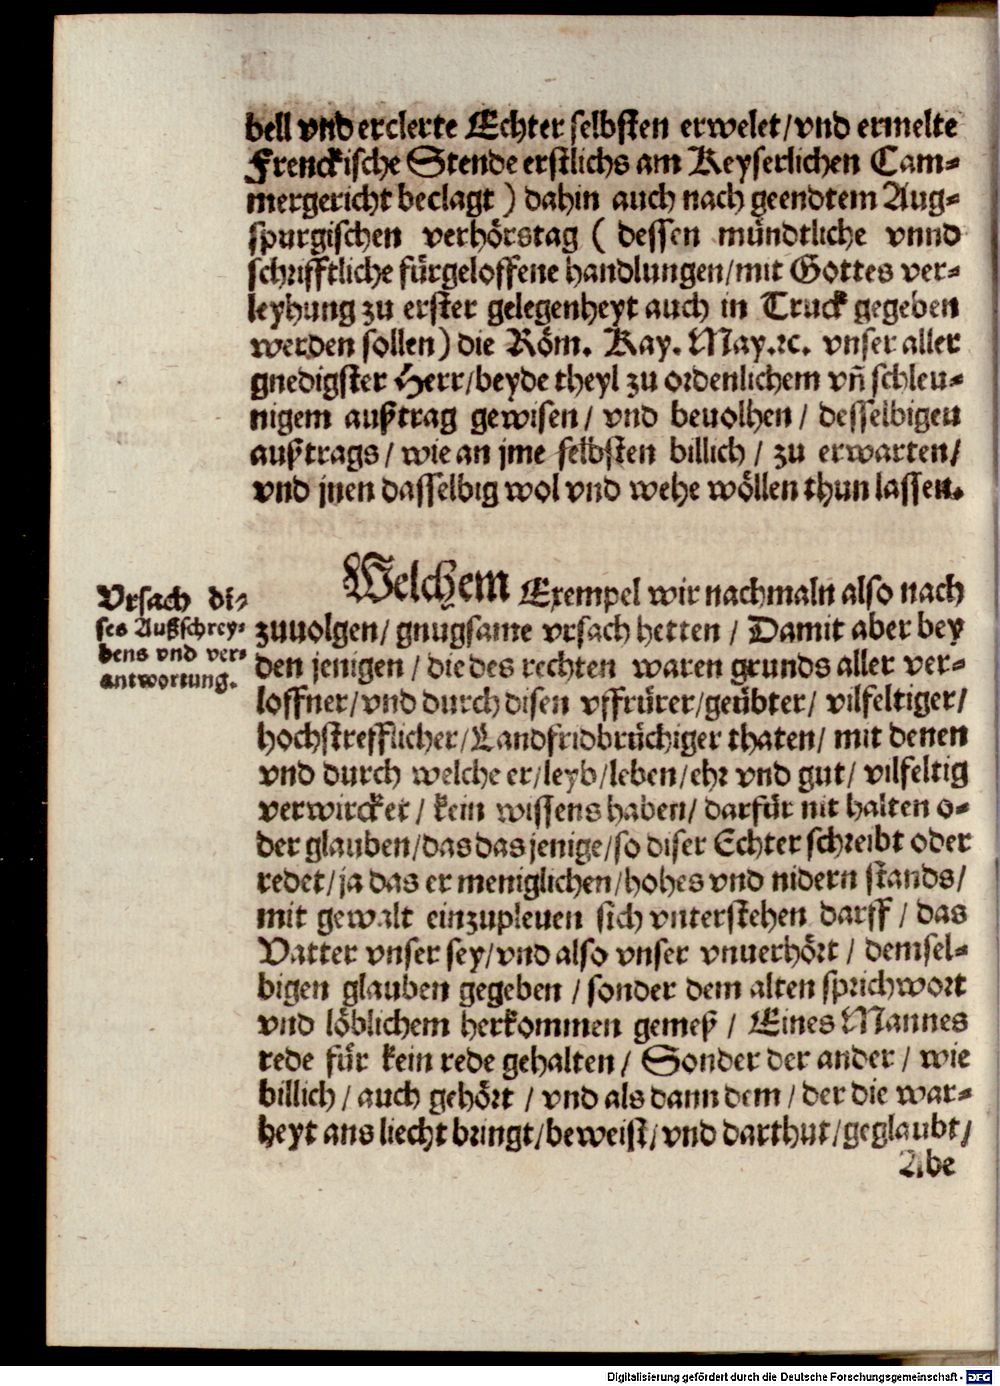 bell vnd erclerte Echter selbsten erwelet/vnd ermelte
Frenckische Stende erstlichs am Keyserlichen Cam-
mergericht beclagt) dahin auch nach geendtem Aug-
spurgischen verhörstag ( dessen mündtliche vnnd
schrifftliche fürgeloffene handlungen/mit Gottes ver-
leyhung zu erster gelegenheyt auch in Truck gegeben
werden sollen) die Röm. Kay. May.ꝛc. vnser aller
gnedigster Herr/beyde theyl zu ordenlichem vñ schleu-
nigem außtrag gewisen/ vnd beuolhen/ desselbigen
außtrags/ wie an jme selbsten billich/ zu erwarten/
vnd jnen dasselbig wol vnd wehe wöllen thun lassen.
Welchem Exempel wir nachmaln also nach
Vrsach di-
ses Außschrey-
bens vnd ver-
antwortung.
zuuolgen/ gnugsame vrsach hetten / Damit aber bey
den jenigen / die des rechten waren grunds aller ver-
loffner/vnd durch disen vffrürer/geübter/ vilfeltiger/
hochstrefflicher/Landfridbrüchiger thaten/ mit denen
vnd durch welche er/leyb/leben/ehr vnd gut/ vilfeltig
verwircket/ kein wissens haben/ darfür nit halten o-
der glauben/das das jenige/so diser Echter schreibt oder
redet/ja das er meniglichen/hohes vnd nidern stands/
mit gewalt einzupleuen sich vnterstehen darff / das
Vatter vnser sey/vnd also vnser vnuerhört / demsel-
bigen glauben gegeben / sonder dem alten sprichwort
vnd löblichem herkommen gemeß / Eines Mannes
rede für kein rede gehalten/ Sonder der ander/ wie
billich/ auch gehört / vnd als dann dem/ der die war-
heyt ans liecht bringt/beweist/vnd darthut/geglaubt/
Abe
Digitalisierung gefördert durch die Deutsche Forschungsgemeinschaft - DFG